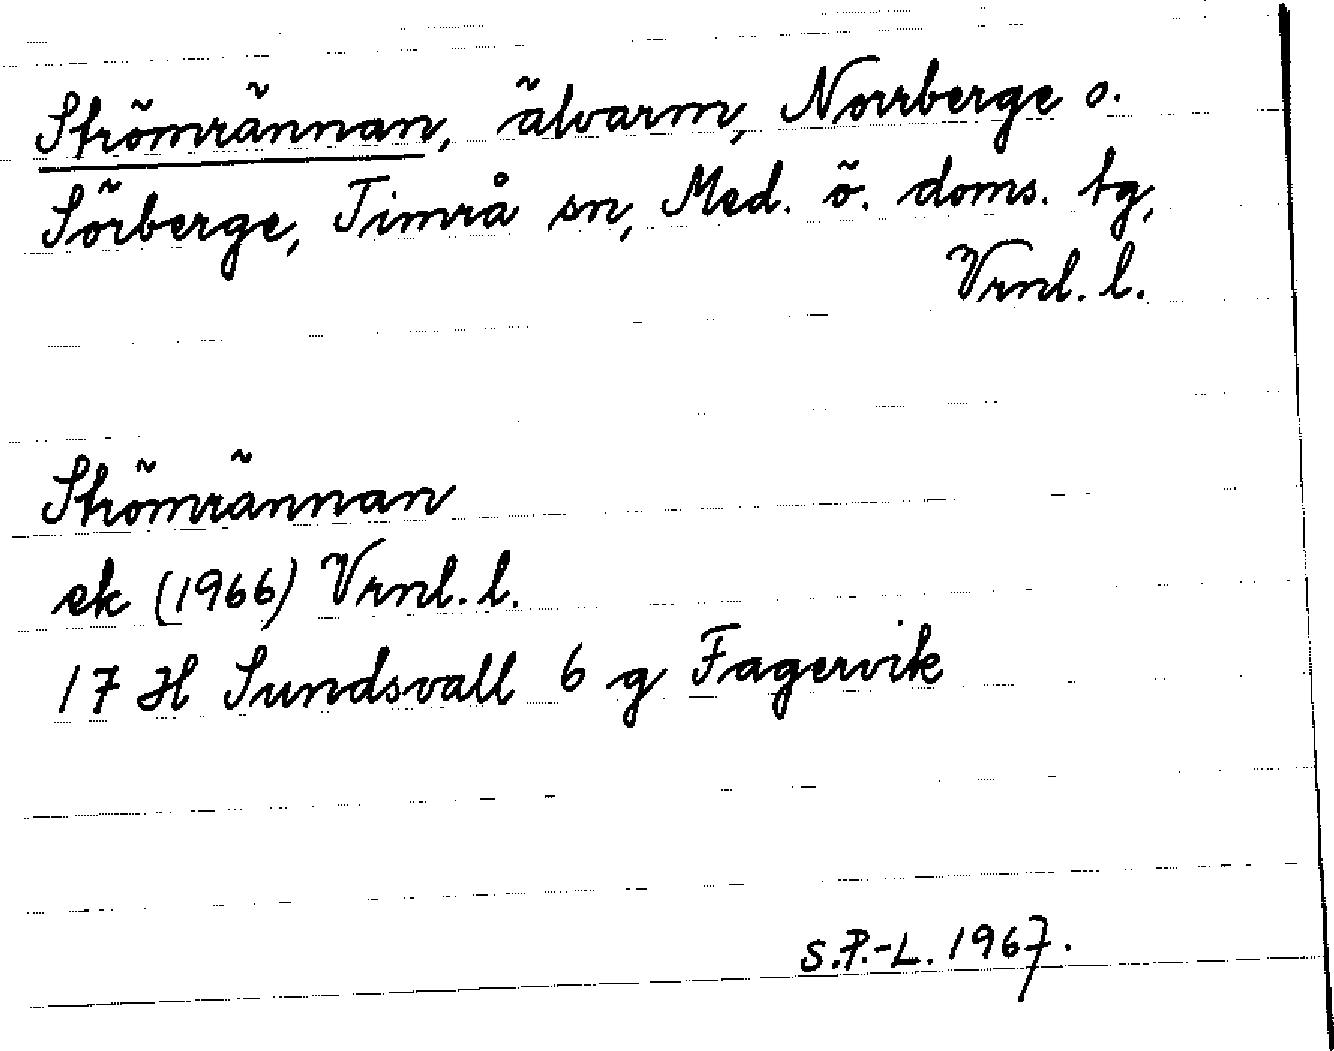 Strömrännan, älvarm, Norrberge o.
Sörberge, Timrå sn, Med. ö. doms. tg,
Vrnl. l.
Strömrännan
ek (1966) Vrnl. l.
17 H Sundsvall 6 g Fagervik
S.P.-L. 1967.